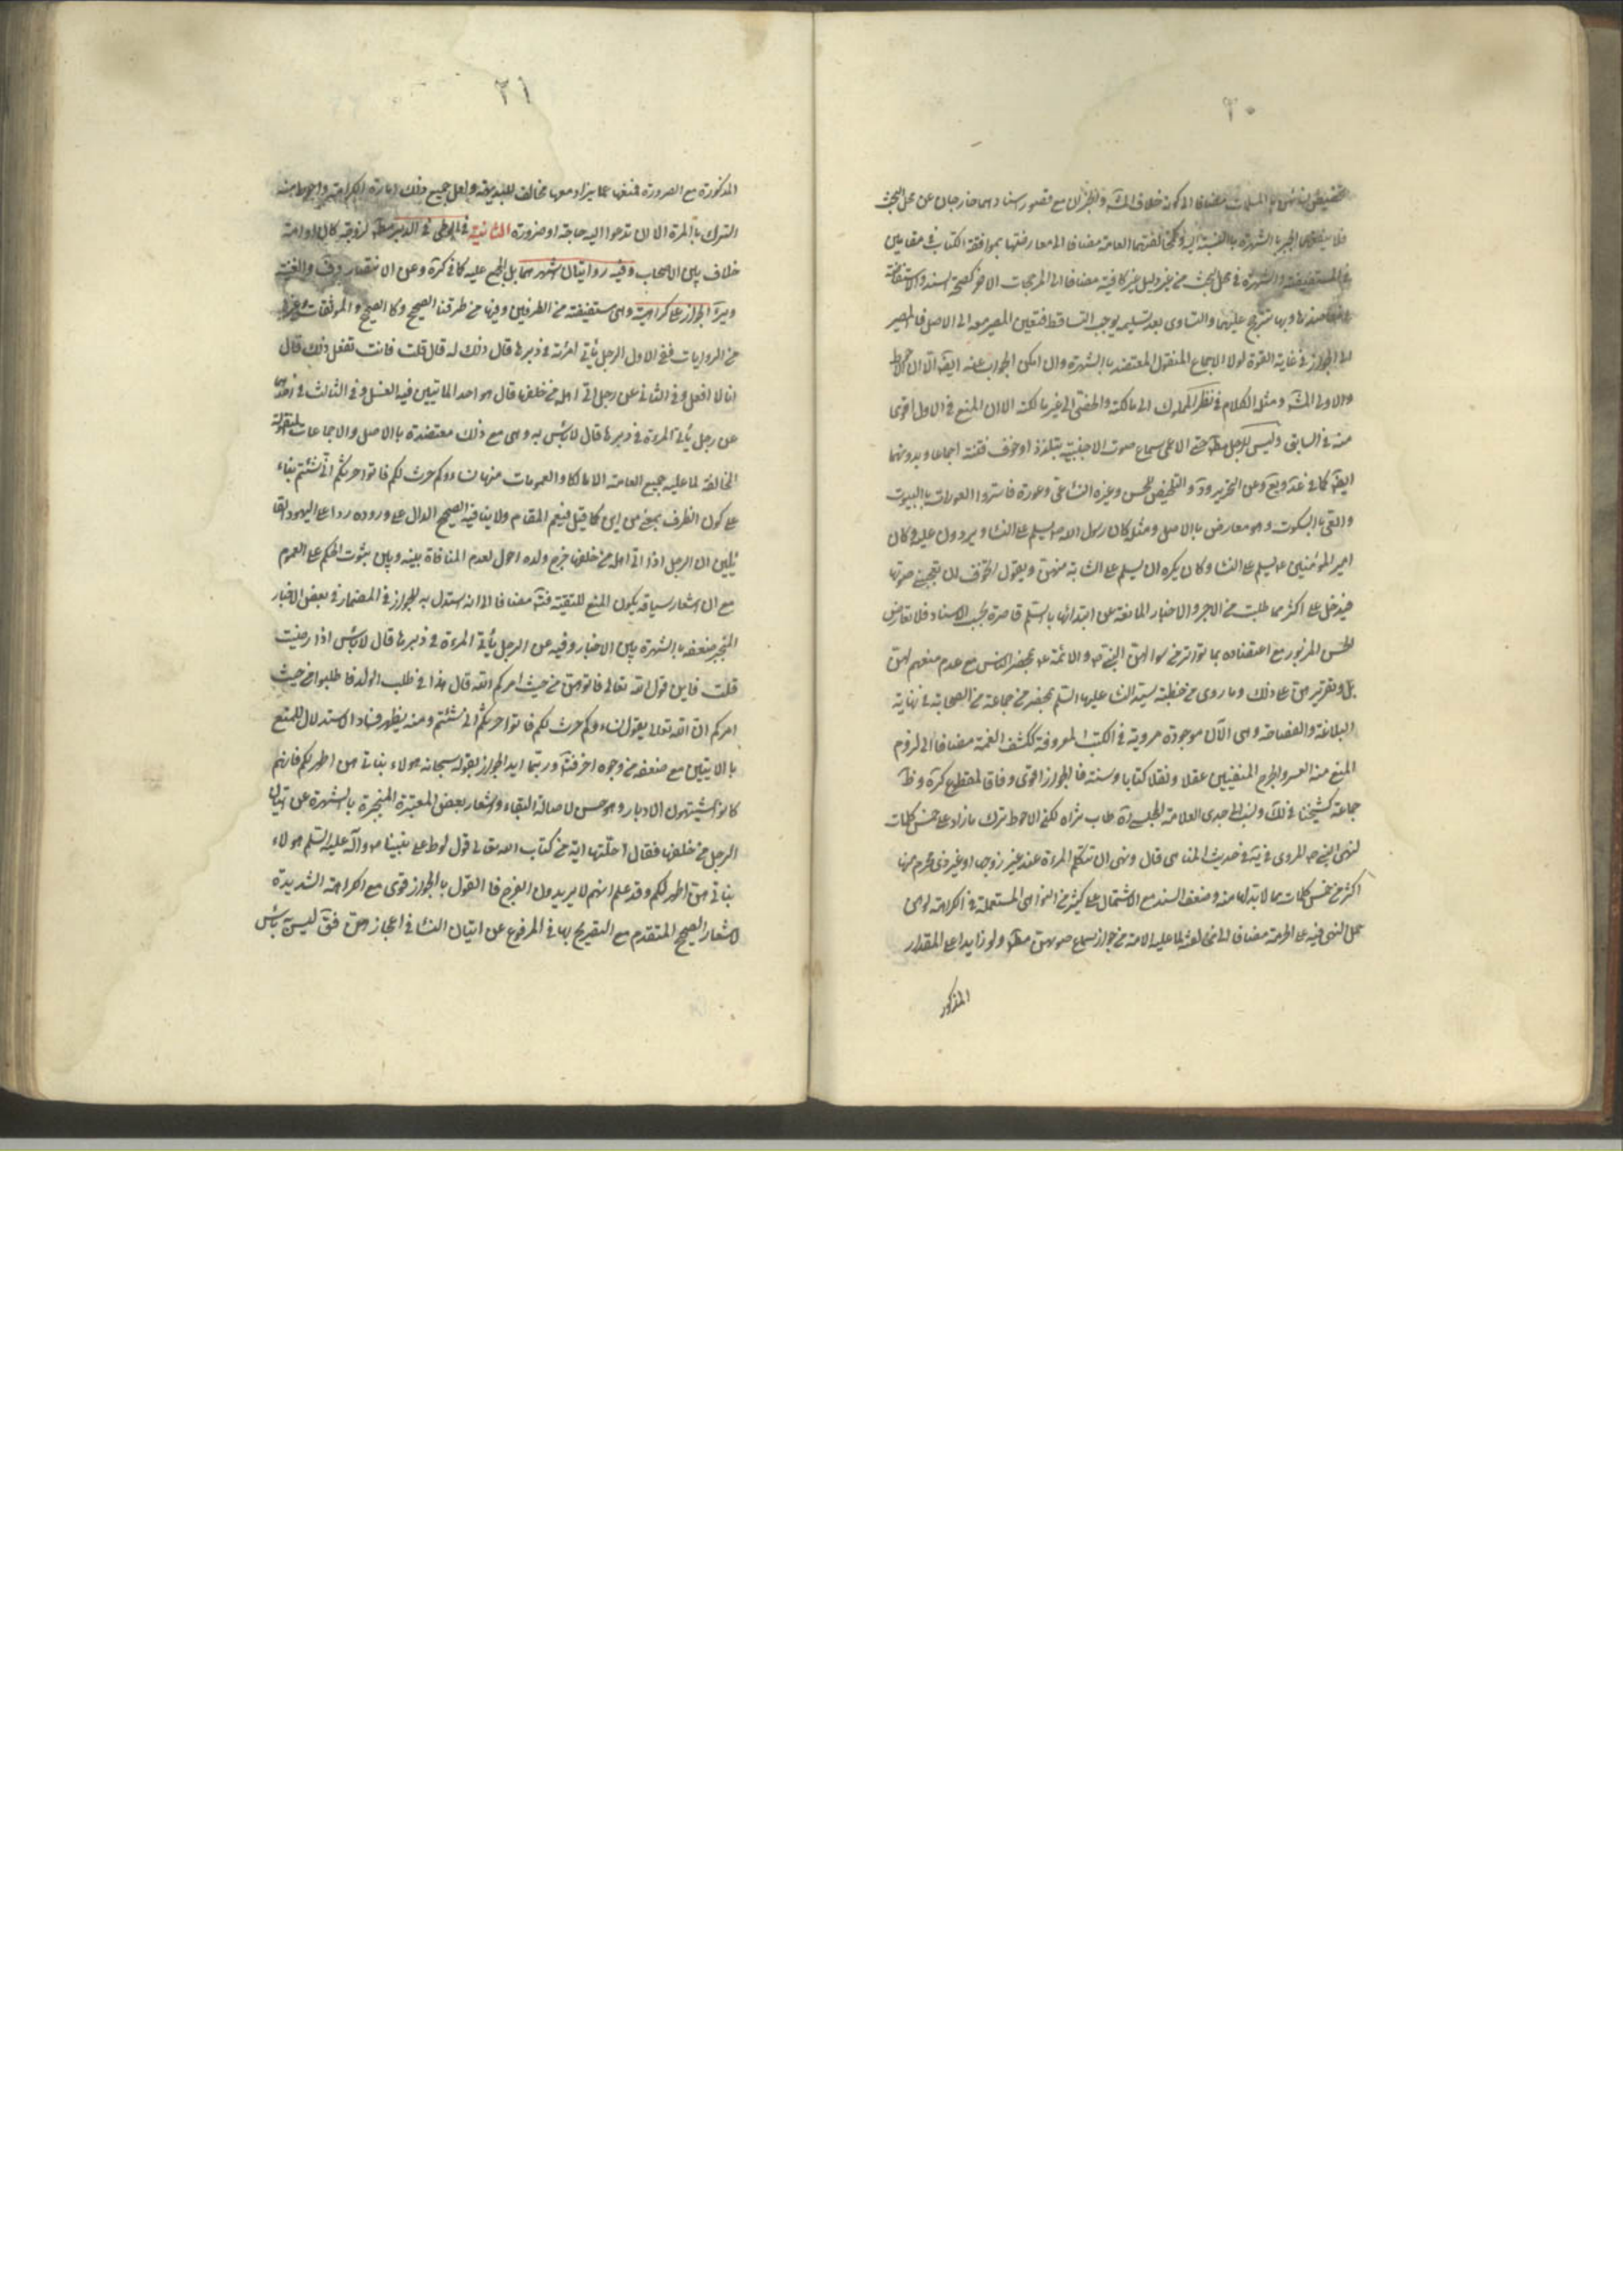 ٢٠
مضافا الى كونه خلاف المشهور والخبران مع قصور سنادهما خارجان عن محل البحث
فلا ينجبر بالشهرة بالنسبة اليه العامة مضافا الى معارضتها بموافقة الكتاب في مقامين
والشهرة في محل البحث من غير دليل غير كافية مضافا الى المرجحات الاخر كصحة السند والاستفاضة
وبها تترجح عليهما والتساوى بعد تسليمه يوجب التساقط فتعين المصير معه الى الاصل فالمصير
الى الجواز في غاية القوة لولا الاجماع المنقول المعتضد بالشهرة وان امكن الجواب عنه ايضا الا ان الاحوط
والاولى المنع ومثله الكلام في نظر المملوك الى مالكته والخصى الى غير مالكته الا ان المنع في الاول اقوى
منه في السابق وليس للرجل مط حتى الاعمى سماع صوت الاجنبية بتلذذ او خوف فتنة اجماعا وبدونهما
ايضا كما في عد ويع وعن التحرير ود والتلخيص للحسن وغيره النساء عى وعورة فاستروا العورات بالبيوت
والعى بالسكوت وهو معارض بالاصل ومثله كان رسول الله ص يسلم على النساء ويرددن عليه وكان
امير المؤمنين ع يسلم على النساء وكان يكره ان يسلم على الشابة منهن ويقول اتخوف ان يعجبنى صوتها
فيدخل على اكثر مما طلبت من الاجر والاخبار المانعة عن ابتدائها بالسلم قاصرة بحسب الاسناد فلا تعارض
الحسن المزبور مع اعتضاده بما تواتر من سوالهن النبى ص والائمة ع بمحضر الناس مع عدم منعهم لهن
بل وتقريرهن على ذلك وما روى من خطبة سيدة النساء عليها السلم بمحضر من جماعة من الصحابة في نهاية
البلاغة والفصاحة وهى الآن موجودة مروية في الكتب المعروفة ككشف الغمة مضافا الى لزوم
المنع منه العسر والحرج المنفيين عقلا ونقلا كتابا وسنة فالجواز اقوى وفاقا لمقطوع كرة وظ
جماعة كشيخنا في لك ونسب الى جدى العلامة المجلسى ره طاب ثراه لكن الاحوط ترك ما زاد على خمس كلمات
لنهى النبى ص المروى في يه في حديث المناهى قال ونهى ان تتكلم المراة عند غير زوجها او غير ذى محرم منها
اكثر من خمس كلمات مما لابد لها منه وضعف السند مع الاشتمال على كثير من النواهى المستعملة في الكراهة نوهن
حمل النهى فيه على الحرمة مضافا الى مخالفته لما عليه الامة من جواز سماع صوتهن مط ولو زايدا على المقدار
المذكور
٢١
المذكورة مع الضرورة فمنعها عما يزاد معها مخالف للبديهة ولعل جميع ذلك امارة الكراهة واحوط منه
الترك بالمرة الا ان تدعوا اليه حاجة او ضرورة الثانية في الوطى في الدبر مط لزوجة كان او امة
خلاف بين الاصحاب وفيه روايتان اشهرهما بل المجمع عليه كما في كرة وعن الانتصار وف والغنية
وير الجواز على كراهية وهى مستفيضة من الطرفين وفيها من طرقنا الصحيح وكالصحيح والموثقات وغيرها
من الروايات ففى الاول الرجل ياتى امرئته في دبرها قال ذلك له قال قلت فانت تفعل ذلك قال
انا لا نفعل وفي الثانى عن رجل اتى اهله من خلفها قال هو احد الماتيين فيه الغسل وفي الثالث
عن رجل ياتى المرءة في دبرها قال لاباس به وهى مع ذلك معتضدة بالاصل والاجماعات المنقولة
المخالفة لما عليه جميع العامة الا مالكا والعمومات منها نساءوكم حرث لكم فاتوا حرثكم انى شئتم بناء
على كون الظرف بمعنى من اين كما قيل فيعم المقام ولاينافيه الصحيح الدال على وروده ردا على اليهود القا
ئلين ان الرجل اذا اتى اهله من خلفها خرج ولده احول لعدم المنافاة بينه وبين ثبوت الحكم على العموم
مع ان اشعار سياقه بكون المنع للتقية فتامل مضافا الى انه استدل به للجواز في المضمار في بعض الاخبار
المنجبر ضعفه بالشهرة بين الاخبار وفيه عن الرجل ياتى المرءة في دبرها قال لاباس اذا رضيت
قلت فاين قول الله تعالى فاتوهن من حيث امركم الله قال هذا في طلب الولد فاطلبوا من حيث
امركم الله ان الله تعالى يقول نساءوكم حرث لكم فاتوا حرثكم انى شئتم ومنه يظهر فساد الاستدلال للمنع
بالايتين مع ضعفه من وجوه اخر فتامل وربما ايد الجواز بقوله سبحانه هولاء بناتى هن اطهر لكم فانهم
كانوا يشتهون الادبار وهو حسن لاصالة البقاء واشعار بعض المعتبرة المنجبرة بالشهرة عن اتيان
الرجل من خلفها فقال احلتها اية من كتاب الله تعالى قول لوط على نبينا ص وآله عليه السلم هولاء
بناتى هن اطهر لكم وقد علم انهم لا يريدون الفرج فالقول بالجواز قوى مع الكراهة الشديدة
لاشعار الصحيح المتقدم مع التصريح بها في المرفوع عن اتيان النساء في اعجازهن فقال ليس به باس